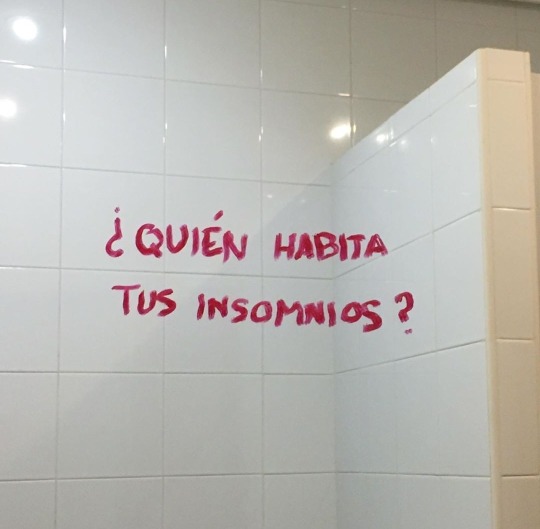 ¿QUIÉN HABITA
TUS INSOMNIOS?